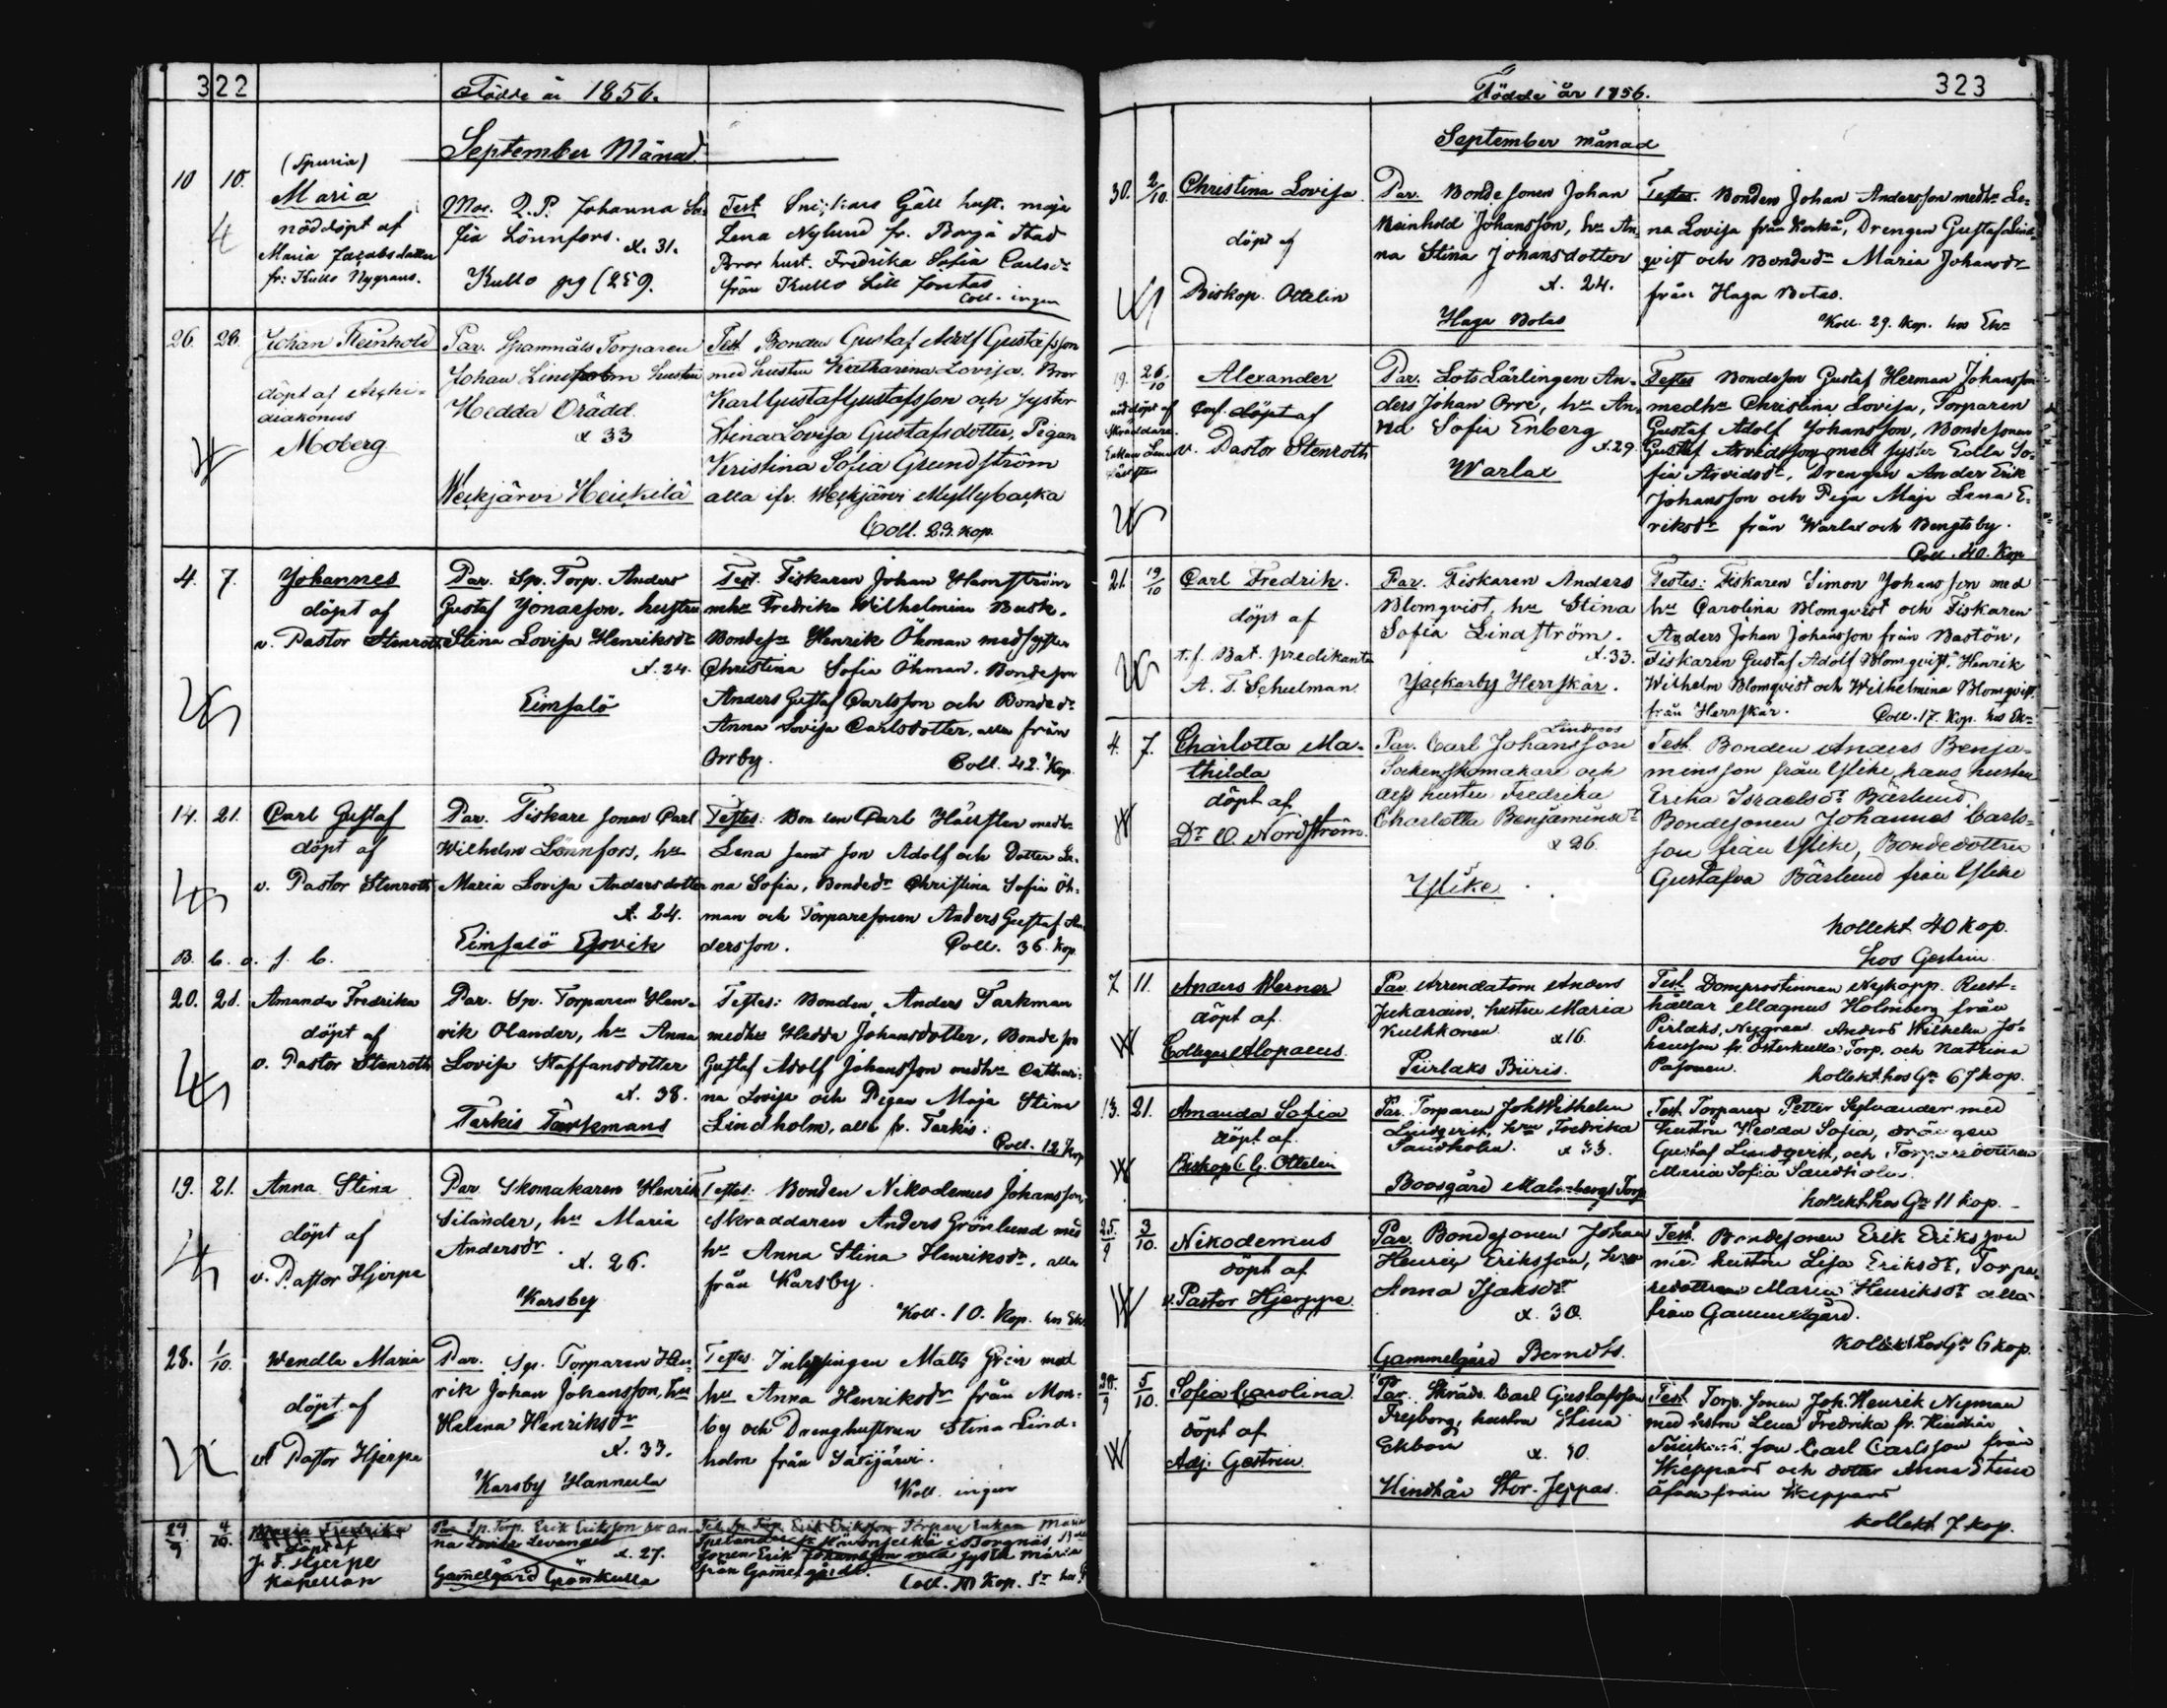 322
Födde år 1856.
September Månad
10 10.
(Spuria)
Maria
nöddöpt af
Maria Jacobsdotter
fr: Kullo Nygrans.
Mor. Q.P. Johanna So-
fia Lönnfors. Æ. 31.
Kullo pg (259.
Test Snickars Gäll hust. maja
Lena Nylund fr. Borgå Stad
Bror hust. Fredrika Sofia Carlsdr
från Kullo Lill Jontas
Coll. ingen
26. 28.
Johan Reinhold
döpt af Archi-
diakonus
Moberg
Par. Spannmåls Torparen
Johan Lindholm hustru
Hedda Orädd
Æ 33
Weckjärvi Heickilä
Test Bonden Gustaf Adolf Gustafsson
med hustru Katharina Lovisa. Bror
Karl Gustaf Gustafsson och syster
Stina Lovisa Gustafsdotter, Pigan
Kristina Sofia Grundström
alla ifr. Weckjärvi Myllybacka
Coll. 23. kop.
4. 7.
Johannes
döpt af
v. Pastor Stenroth
Par. Sp. Torp. Anders
Gustaf Jonasson, hustru
Stina Lovisa Henriksdr
Æ. 24.
Eimsalö
Test. Fiskaren Johan Hamström
mhu Fredrika Wilhelmina Busk.
Bondesn Henrik Öhman med syster
Christina Sofia Öhman. Bondeson
Anders Gustaf Carlsson och Bondedr
Anna Lovisa Carlsdotter, alla från
Orrby. Coll. 42. Kop.
14. 21.
Carl Gustaf
döpt af
v. Pastor Stenroth
Par. Fiskare sonen Carl
Wilhelm Lönnfors, hu
Maria Lovisa Andersdotter
Æ. 24.
Eimsalö Ejovik
Testes: Bonden Carl medhu
Lena samt son Adolf och Dotter Le-
na Sofia, Bondedr Christina Sofia Öh-
man och Torparesonen Anders Gustaf An-
dersson. Coll. 36. Kop.
B. b. o. f. b.
20. 21.
Amanda Fredrika
döpt af
v. Pastor Stenroth
Par. Sp. Torparen Hen-
rik Olander, hu Anna
Lovisa Staffansdotter
Æ. 38.
Tarkis Tarkmans
Testes: Bonden Anders Tarkman
medhu Hedda Johansdotter, Bonde son
Gustaf Adolf Johansson medhu Cathari-
na Lovisa och Pigan Maja Stina
Lindholm, alla fr. Tarkis.
Coll. 12 Kop
19. 21.
Anna Stina
döpt af
v. Pastor Hjerpe
Par. Skomakaren Henrik
Silander, hu Maria
Andersdr.
Æ. 26.
Karsby
Testes: Bonden Nikodemus Johansson,
Skraddaren Anders Grönlund med
hu Anna Stina Henriksdr. alla
från Karsby.
Koll. 10. Kop. hos Ek.
28. 1/10.
Wendla Maria
döpt af
v. Pastor Hjerpe
Par. Sp. Torparen Hen-
rik Johan Johansson, hu
Helena Henriksdr
Æ. 33.
Karsby Hannula
Testes. Inhysingen Matts Grön med
hu Anna Henriksdr från Mon-
by och Dreng hustrun Stina Lind-
holm från Särijärvi.
Koll. ingen
29/9 4/10.
Maria Fredrika
döpt af
J. F. Hjerpe
Kapellan
Par Sp. Torp. Erik Eriksson hu An-
na Lovisa Levander
Æ. 27.
Gammelgård Grönkulla
Test. Sp. Torp. Erik Eriksson Torpare Enkan Maria
i Borgnäs
sonen Erik Johansson med syster Maria
från Gammelgård.
Coll. 10 Kop.
Födde år 1856.
323
September månad
30. 2/10.
Christina Lovisa
döpt af
Biskop. Ottelin
Par. Bondesonen Johan
Reinhold Johansson, hu An-
na Stina Johansdotter
Æ. 24.
Haga Botas
Testes. Bonden Johan Andersson medhu Le-
na Lovisa från Kerkå, Drengen Gustaf Lind-
qvist och Bondedr Maria Johansdr
från Haga Botas.
Koll. 29. Kop. hos Ekn
19. 26/10
nöddöpt af
Skräddare
Enkan Lena
Alexander
Conf. döpt af
v. Pastor Stenroth
Par. Lots Lärlingen An-
ders Johan Orre, hu An-
na Sofia Enberg
Æ. 29.
Warlax
Testes Bondeson Gustaf Herman Johansson
medhu Christina Lovisa, Torparen
Gustaf Adolf Johansson, Bondesonen
Gustaf Arvidsson med syster Edla So-
fia Arvidsdr, Drengen Ander Erik
Johansson och Piga Maja Lena E-
riksdr från Warlax och Bengtsby.
Coll. 40. Kop
21. 19/10
Carl Fredrik.
döpt af
t.f. Bat. predikanten
A. F. Schulman.
Par. Fiskaren Anders
Blomqvist, hu Stina
Sofia Lindström.
Æ. 33.
Jackarby Herrskär.
Testes: Fiskaren Simon Johansson med
hu Carolina Blomqvist och Fiskaren
Anders Johan Johansson från Bastön,
Fiskaren Gustaf Adolf Blomqvist, Henrik
Wilhelm Blomqvist och Wilhelmina Blomqvist
från Herrskär. Coll. 17. Kop. hos Ekn
4. 7.
Charlotta Ma-
thilda
döpt af
Dr C. Nordström.
Lindroos
Par. Carl Johansson
Sockenskomakare och
dess hustru Fredrika
Charlotta Benjaminsdr
Æ 26.
Ylike
Test. Bonden Anders Benja-
minsson från Ylike, hans hustru
Erika Israelsdr Bärlund.
Bondesonen Johannes Carls-
son från Ylike, Bondedottren
Gustafva Bärlund från Ylike
kollekt 40 kop.
hos Gestrin
7 11.
Anders Werner
döpt af
Collegan Alopaeus.
Par. Arrendatorn Anders
Jukarain, hustru Maria
Kulkkonen. Æ 16.
Pirlaks Biiris.
Test. Domprostinnan Nykopp. Rust-
hållar Magnus Holmberg från
Pirlaks, Nygrans. Anders Wilhelm Jo-
hansson fr. Österkulla Torp. och Katrina
Pasonen. kollekt hos Gn 67 kop.
13. 21.
Amanda Sofia
döpt af
Biskop C. G. Ottelin
Par. Torparen Joh Wilhelm
Lindqvist, hru Fredrika
Sandholm. Æ 33.
Boosgård Malmbergs Torp
Test. Torparen Petter Sylvander med
hustru Hedda Sofia, drängen
Gustaf Lindqvist, och Torparedottren
Maria Sofia Sandholm.
kollekt hos Gn 11 kop.
25/9 3/10.
Nikodemus
döpt af
v. Pastor Hjerppe.
Par. Bondesonen Johan
Henrik Eriksson, hru
Anna Isaksdr
Æ. 30.
Gammelgård Berndts.
Test. Bondesonen Erik Eriksson
med hustru Lisa Eriksdr, Torpa-
redottren Maria Henriksdr alla
från Gammelgård.
Kollekt hos Gn 6 kop.
28/9 5/10.
Sofia Carolina
döpt af
Adj. Gestrin.
Par. Skräd. Carl Gustafsson
Frejborg, hustru Stina
Ekbom Æ. 40.
Hindhår Stor-Jeppas.
Test Torp. sonen Joh. Henrik Nyman
med hustru Lena Fredrika fr. Hindhår
son Carl Carlsson från
Weppars och dotter Anna Stina
äfven från Weppars
kollekt 7 kop.